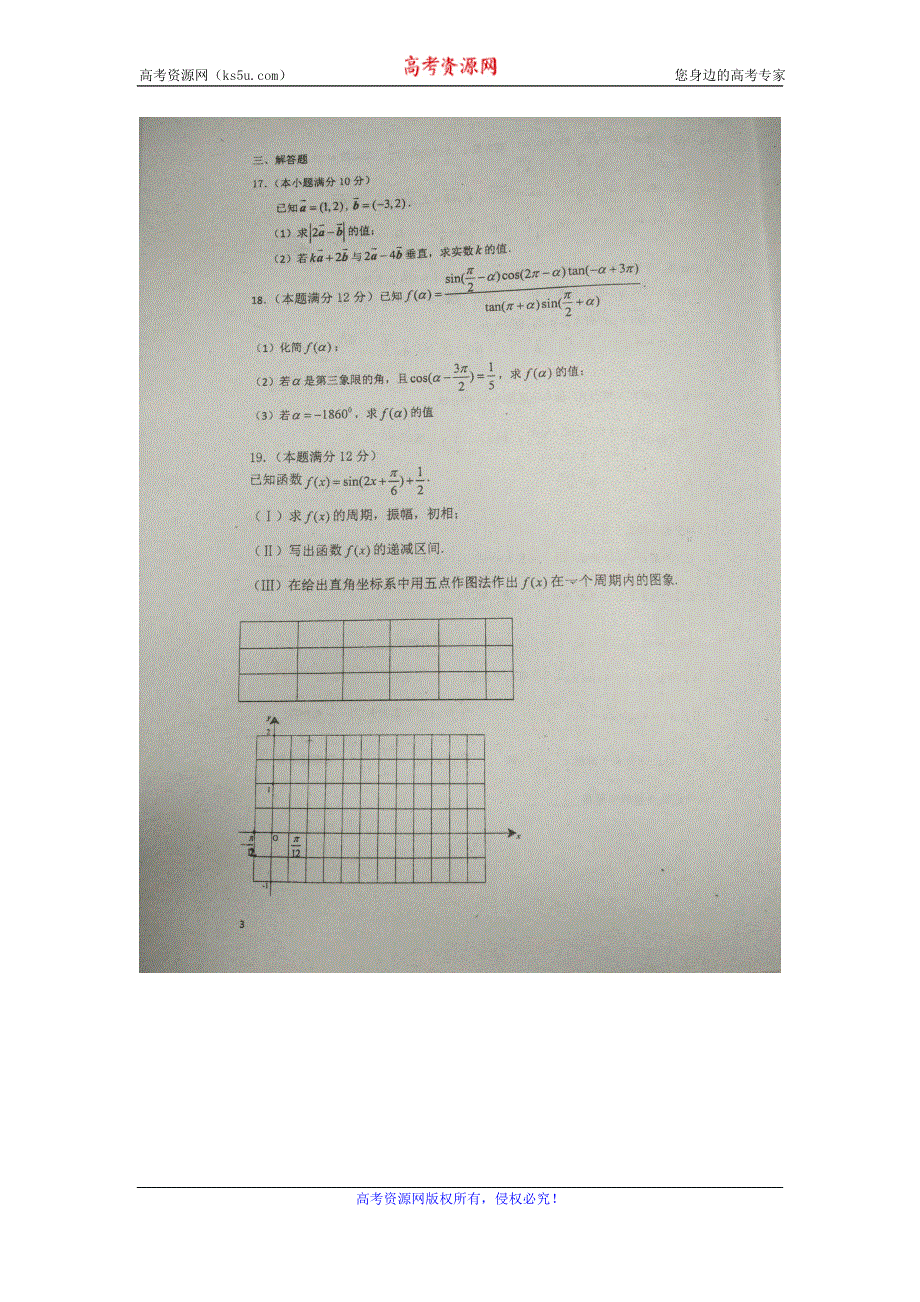 高考资源网（ks5u.com）
高考资源网
您身边的高考专家
三、解答题
17.（本小题满分10分）
已知a⃗=(1,2)，b⃗=(−3,2).
（1）求|2a⃗−b⃗|的值；
（2）若ka⃗+2b⃗与2a⃗−4b⃗垂直，求实数k的值.
18.（本题满分12分）已知 f(α)=sin(π/2−α)cos(2π−α)tan(−α+3π)/tan(π+α)sin(π/2+α).
（1）化简f(α)；
（2）若α是第三象限的角，且cos(α−3π/2)=1/5，求f(α)的值；
（3）若α=−1860⁰，求f(α)的值
19.（本题满分12分）
已知函数f(x)=sin(2x+π/6)+1/2.
（Ⅰ）求f(x)的周期，振幅，初相；
（Ⅱ）写出函数f(x)的递减区间.
（Ⅲ）在给出直角坐标系中用五点作图法作出f(x)在一个周期内的图象.
y
2
1
−π/12 O π/12 x
-1
3
高考资源网版权所有，侵权必究！